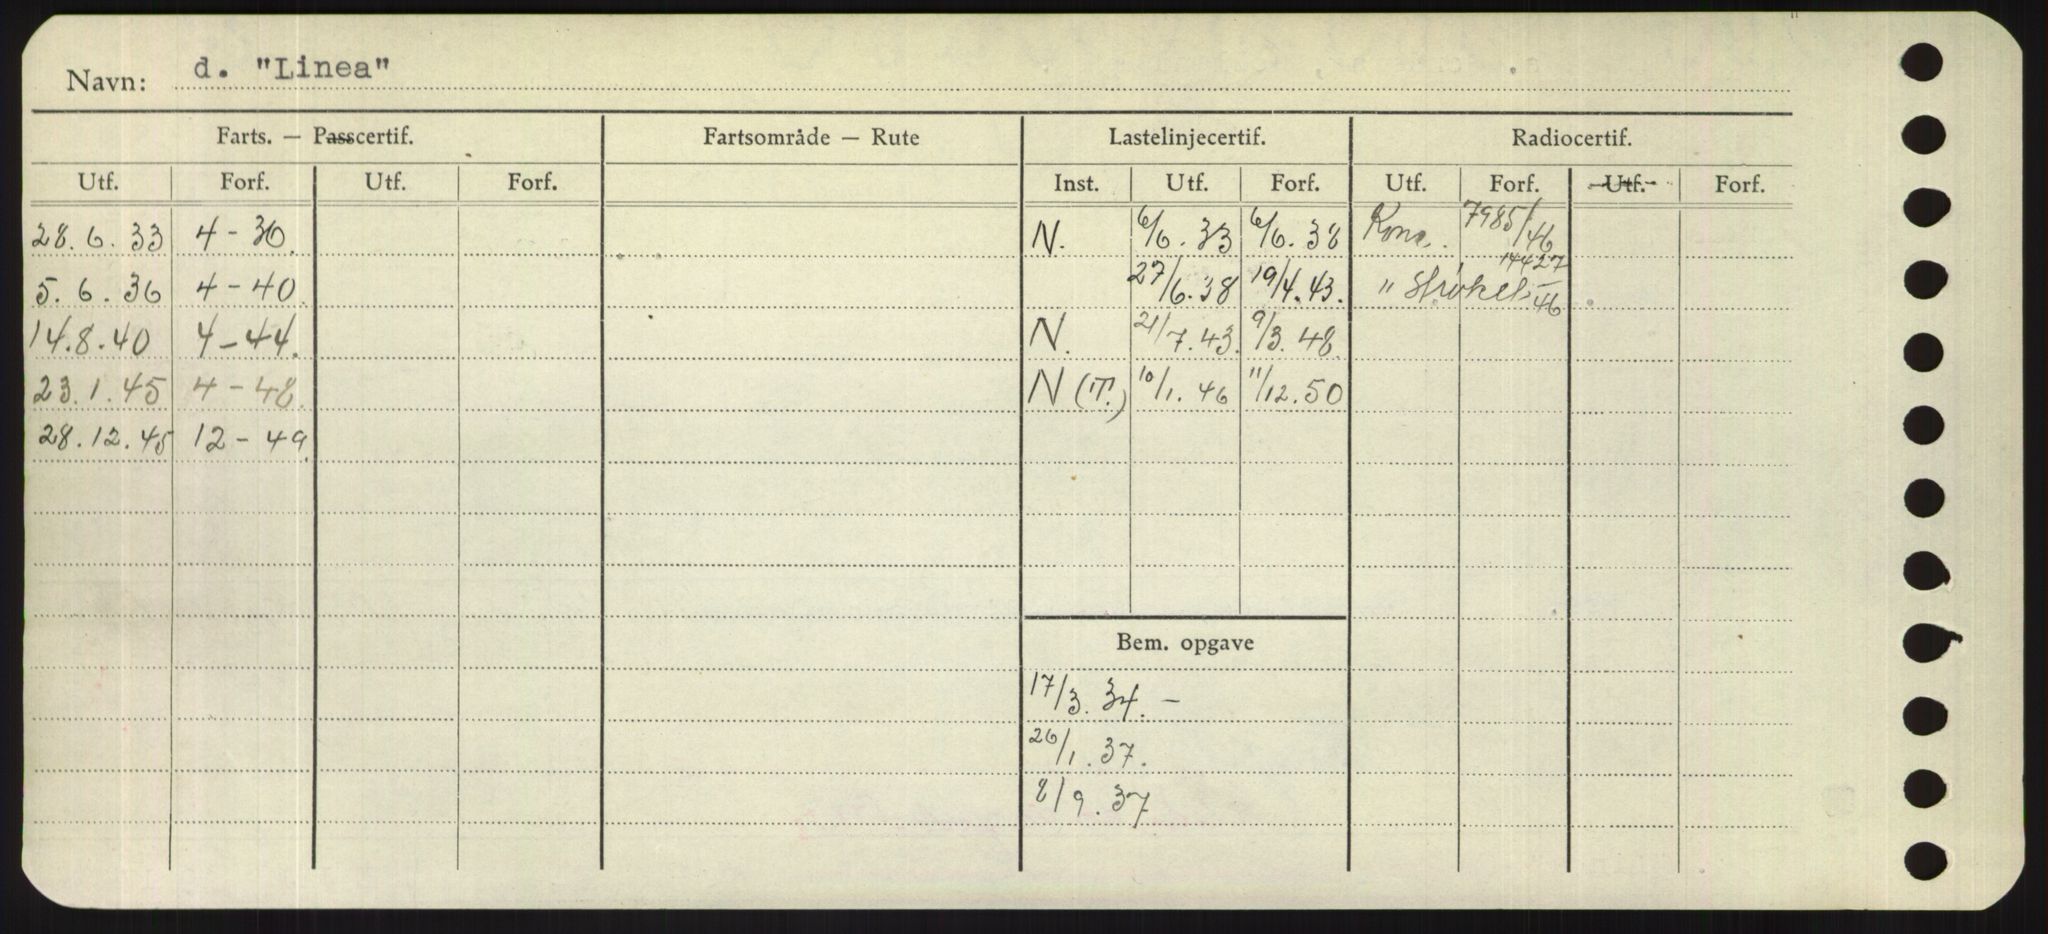 Navn: d. "Linea"
Farts. — Passcertif. Fartsområde — Rute Lastelinjecertif. Radiocertif.
Utf. Forf. Utf. Forf. Inst. Utf. Forf. Utf. Forf. Utf. Forf.
28.6.33 4-36. N. 6/6.33 6/6.38 Konc. 7985/46
5.6.36 4-40. 27/6.38 19/4.43. " strøket 14427/46
14.8.40 4-44. N. 21/7.43. 9/3.48
23.1.45 4-48. N (T.) 10/1.46 11/12.50
28.12.45 12-49.
Bem. opgave
17/3.34. -
26/1.37.
8/9.37